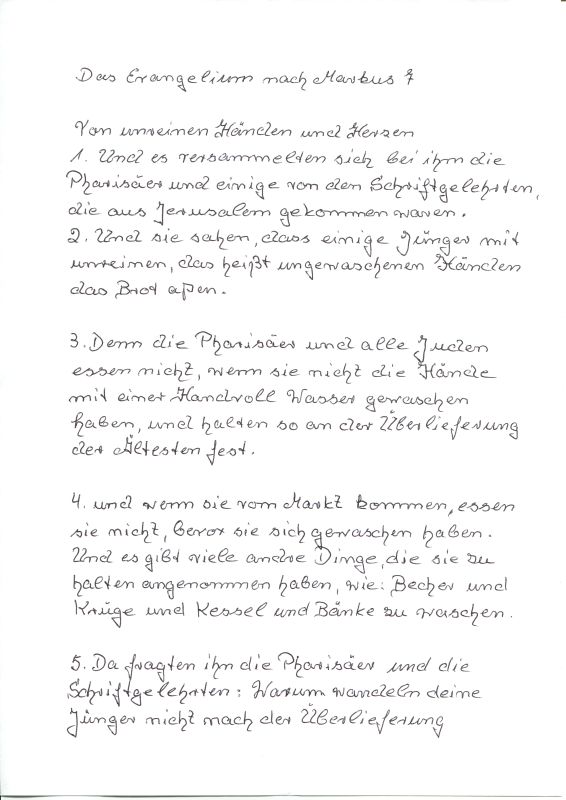 Das Evangelium nach Markus 7
Von unreinen Händen und Herzen
1. Und es versammelten sich bei ihm die
Pharisäer und einige von den Schriftgelehrten,
die aus Jerusalem gekommen waren.
2. Und sie sahen, dass einige Jünger mit
unreinen, das heißt ungewaschenen Händen
das Brot aßen.
3. Denn die Pharisäer und alle Juden
essen nicht, wenn sie nicht die Hände
mit einer Handvoll Wasser gewaschen
haben, und halten so an der Überlieferung
der Ältesten fest.
4. und wenn sie vom Markt kommen, essen
sie nicht, bevor sie sich gewaschen haben.
Und es gibt viele andre Dinge, die sie zu
halten angenommen haben, wie: Becher und
Krüge und Kessel und Bänke zu waschen.
5. Da fragten ihn die Pharisäer und die
Schriftgelehrten: Warum wandeln deine
Jünger nicht nach der Überlieferung